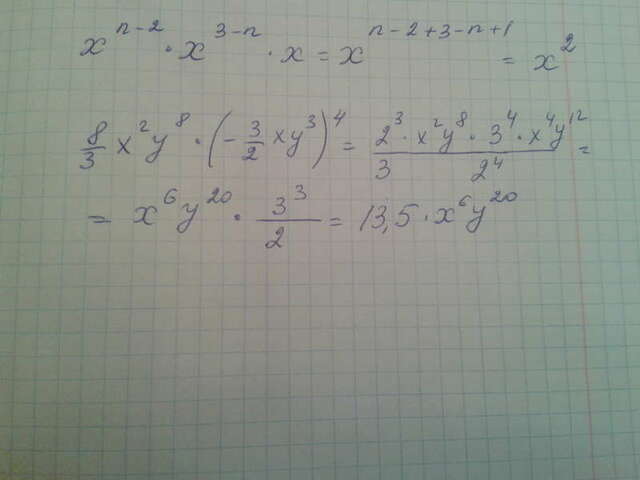 x^{n-2} · x^{3-n} · x = x^{n-2+3-n+1} = x^2
8/3 x^2 y^8 · (-3/2 xy^3)^4 = (2^3 · x^2 y^8 · 3^4 · x^4 y^{12})/(3 2^4) =
= x^6 y^{20} · 3^3/2 = 13,5 · x^6 y^{20}